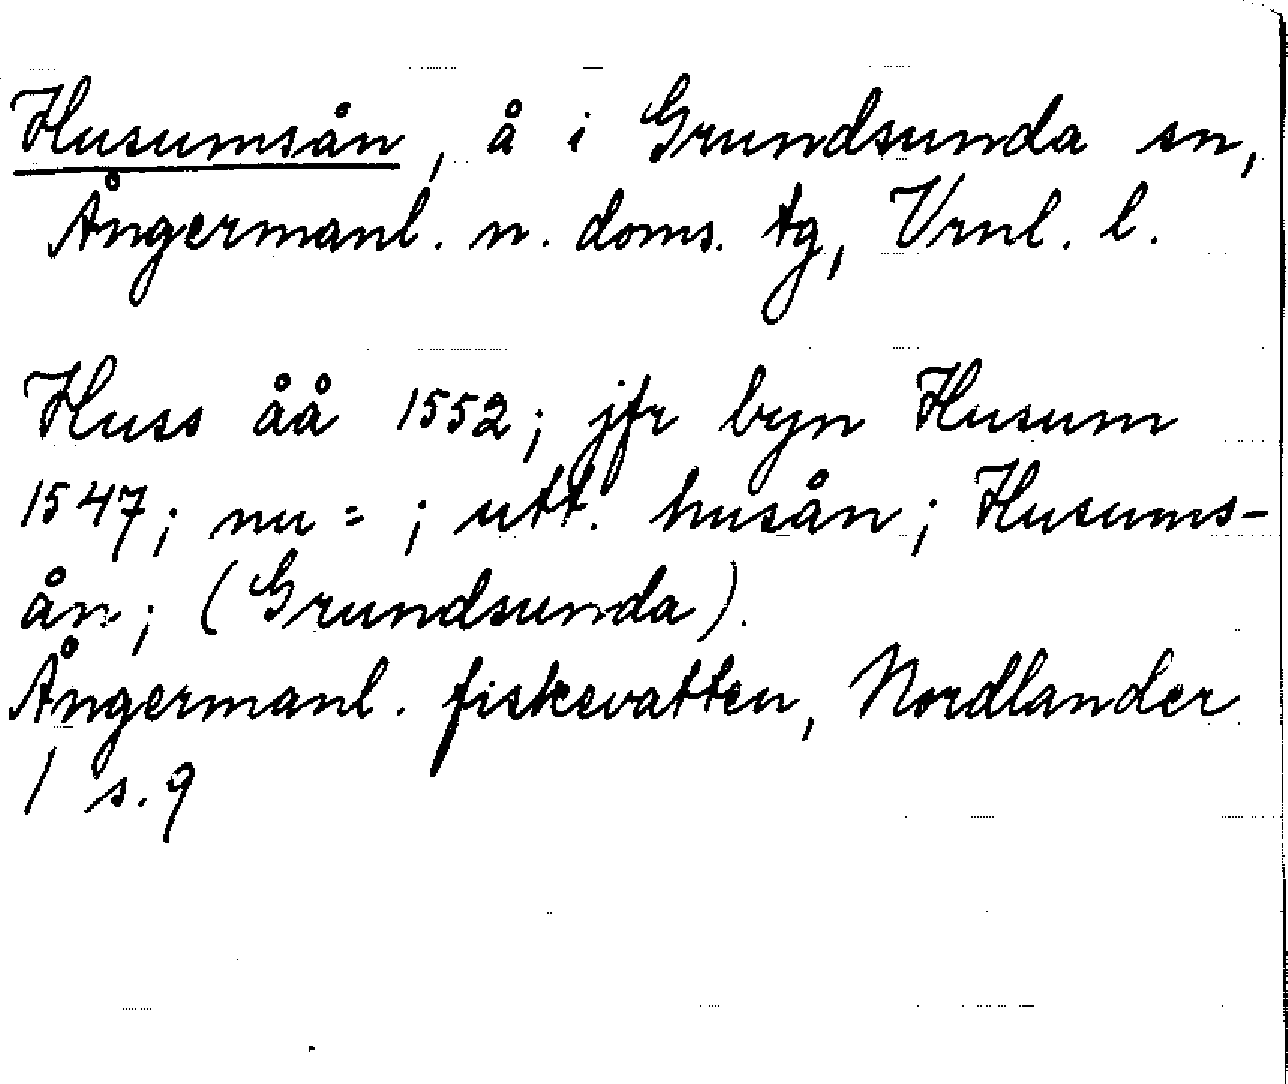 Husumsån, å i Grundsunda sn,
Ångermanl. n. doms. tg, Vrnl. l.
Huss åå 1552; jfr byn Husum
1547; nu = ; utt. husån; Husums-
ån; (Grundsunda).
Ångermanl. fiskevatten, Nordlander
1 s. 9